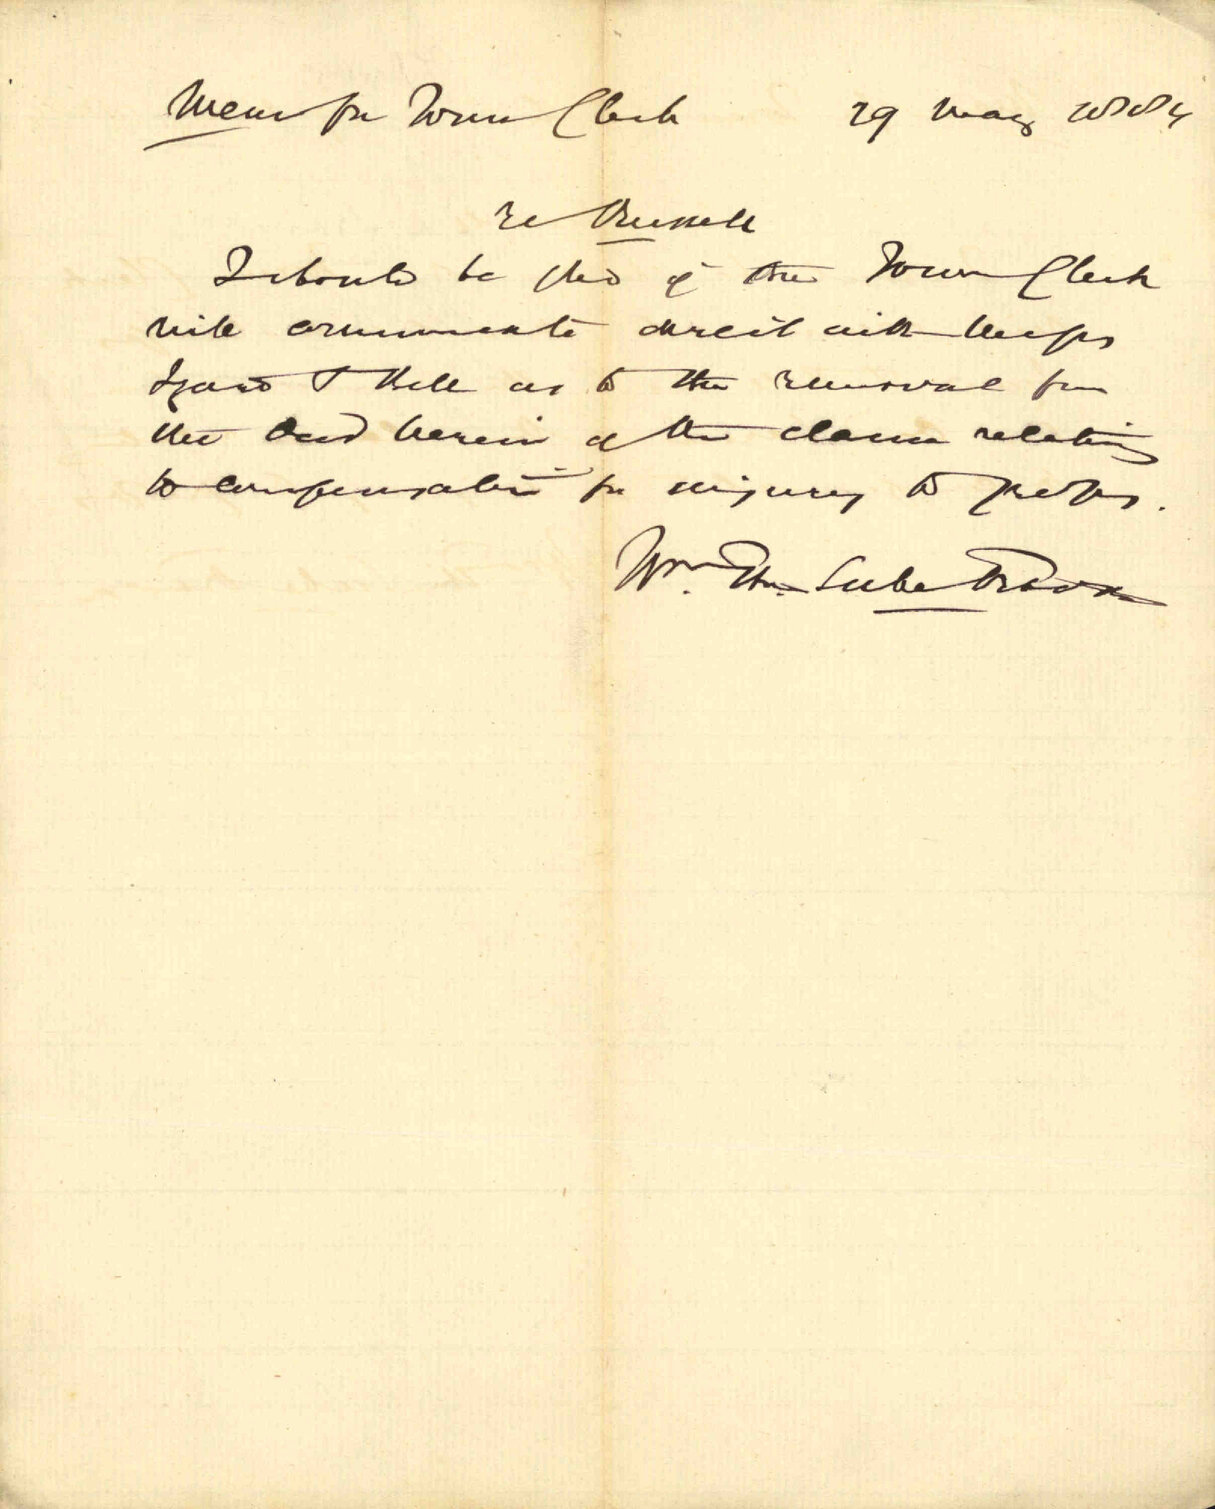 Memo for Town Clerk 29 May 1884
re Russell
I should be glad if the Town Clerk
will communicate direct with Messrs
Izard & Bell as to the removal from
the deed herein of the clause relating
to compensation for injury to
Wm. Travers